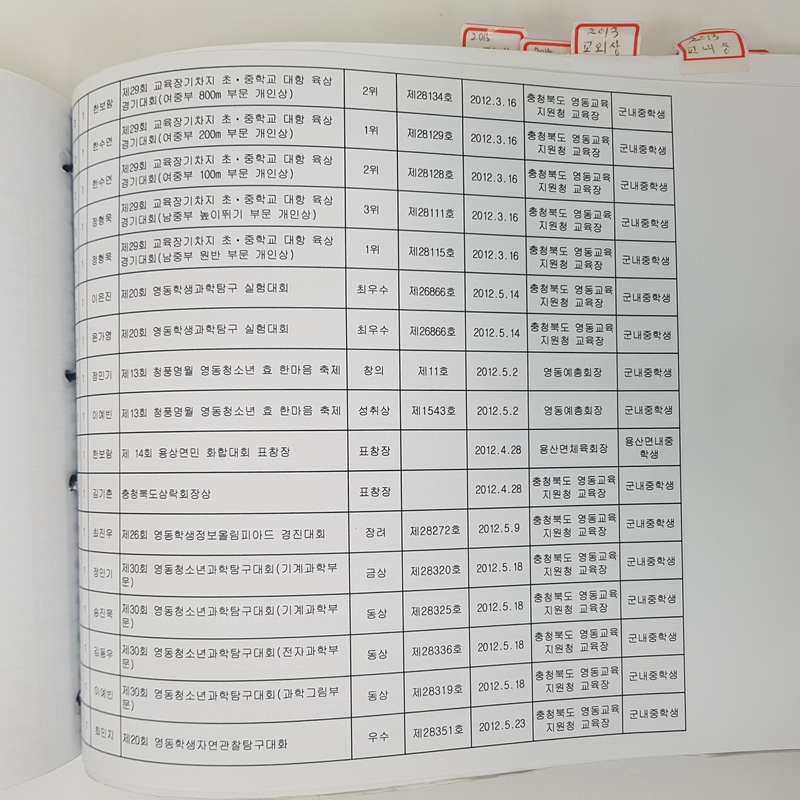 2013
2013
교외상
2013
교내상
1 한보람 제29회 교육장기차지 초·중학교 대항 육상 경기대회(여중부 800m 부문 개인상) 2위 제28134호 2012.3.16 충청북도 영동교육지원청 교육장 군내중학생
1 한수연 제29회 교육장기차지 초·중학교 대항 육상 경기대회(여중부 200m 부문 개인상) 1위 제28129호 2012.3.16 충청북도 영동교육지원청 교육장 군내중학생
1 한수연 제29회 교육장기차지 초·중학교 대항 육상 경기대회(여중부 100m 부문 개인상) 2위 제28128호 2012.3.16 충청북도 영동교육지원청 교육장 군내중학생
1 정형욱 제29회 교육장기차지 초·중학교 대항 육상 경기대회(남중부 높이뛰기 부문 개인상) 3위 제28111호 2012.3.16 충청북도 영동교육지원청 교육장 군내중학생
1 정형욱 제29회 교육장기차지 초·중학교 대항 육상 경기대회(남중부 원반 부문 개인상) 1위 제28115호 2012.3.16 충청북도 영동교육지원청 교육장 군내중학생
1 이은진 제20회 영동학생과학탐구 실험대회 최우수 제26866호 2012.5.14 충청북도 영동교육지원청 교육장 군내중학생
1 윤가영 제20회 영동학생과학탐구 실험대회 최우수 제26866호 2012.5.14 충청북도 영동교육지원청 교육장 군내중학생
1 정민기 제13회 청풍명월 영동청소년 효 한마음 축제 창의 제11호 2012.5.2 영동예총회장 군내중학생
1 이예빈 제13회 청풍명월 영동청소년 효 한마음 축제 성취상 제1543호 2012.5.2 영동예총회장 군내중학생
1 한보람 제 14회 용상면민 화합대회 표창장 표창장 2012.4.28 용산면체육회장 용산면내중학생
1 김기춘 충청북도삼락회장상 표창장 2012.4.28 충청북도 영동교육지원청 교육장 군내중학생
1 최진우 제26회 영동학생정보올림피아드 경진대회 장려 제28272호 2012.5.9 충청북도 영동교육지원청 교육장 군내중학생
1 정민기 제30회 영동청소년과학탐구대회(기계과학부문) 금상 제28320호 2012.5.18 충청북도 영동교육지원청 교육장 군내중학생
1 송진욱 제30회 영동청소년과학탐구대회(기계과학부문) 동상 제28325호 2012.5.18 충청북도 영동교육지원청 교육장 군내중학생
1 김동우 제30회 영동청소년과학탐구대회(전자과학부문) 동상 제28336호 2012.5.18 충청북도 영동교육지원청 교육장 군내중학생
1 이예빈 제30회 영동청소년과학탐구대회(과학그림부문) 동상 제28319호 2012.5.18 충청북도 영동교육지원청 교육장 군내중학생
1 최민지 제20회 영동학생자연관찰탐구대화 우수 제28351호 2012.5.23 충청북도 영동교육지원청 교육장 군내중학생